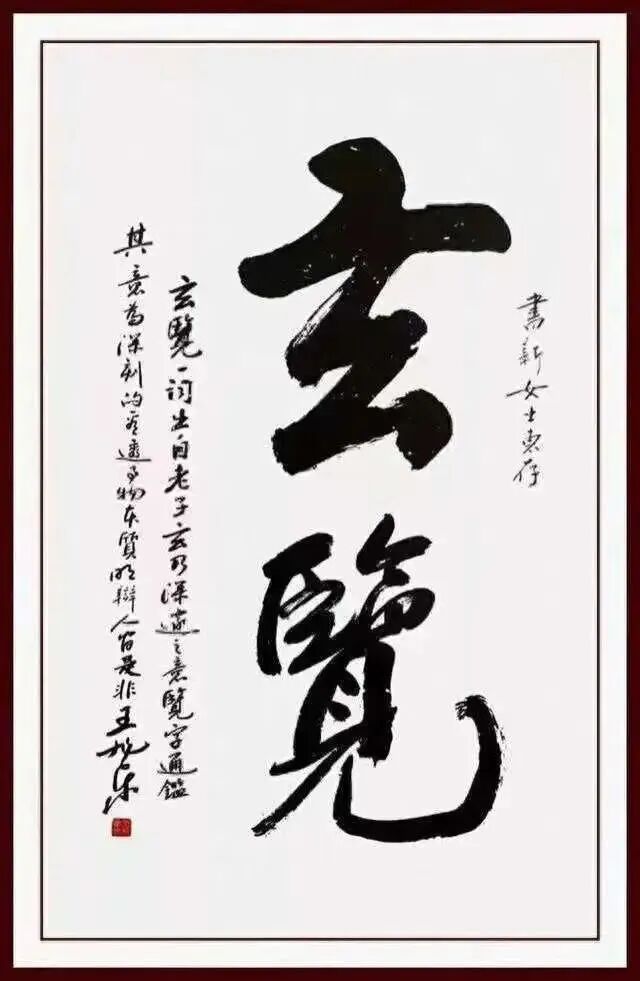 書新女士惠存
玄覽
玄覽一詞出自老子玄乃深邃之意覽字通鑑
其意為深刻的看透事物本質明辯人间是非王旭